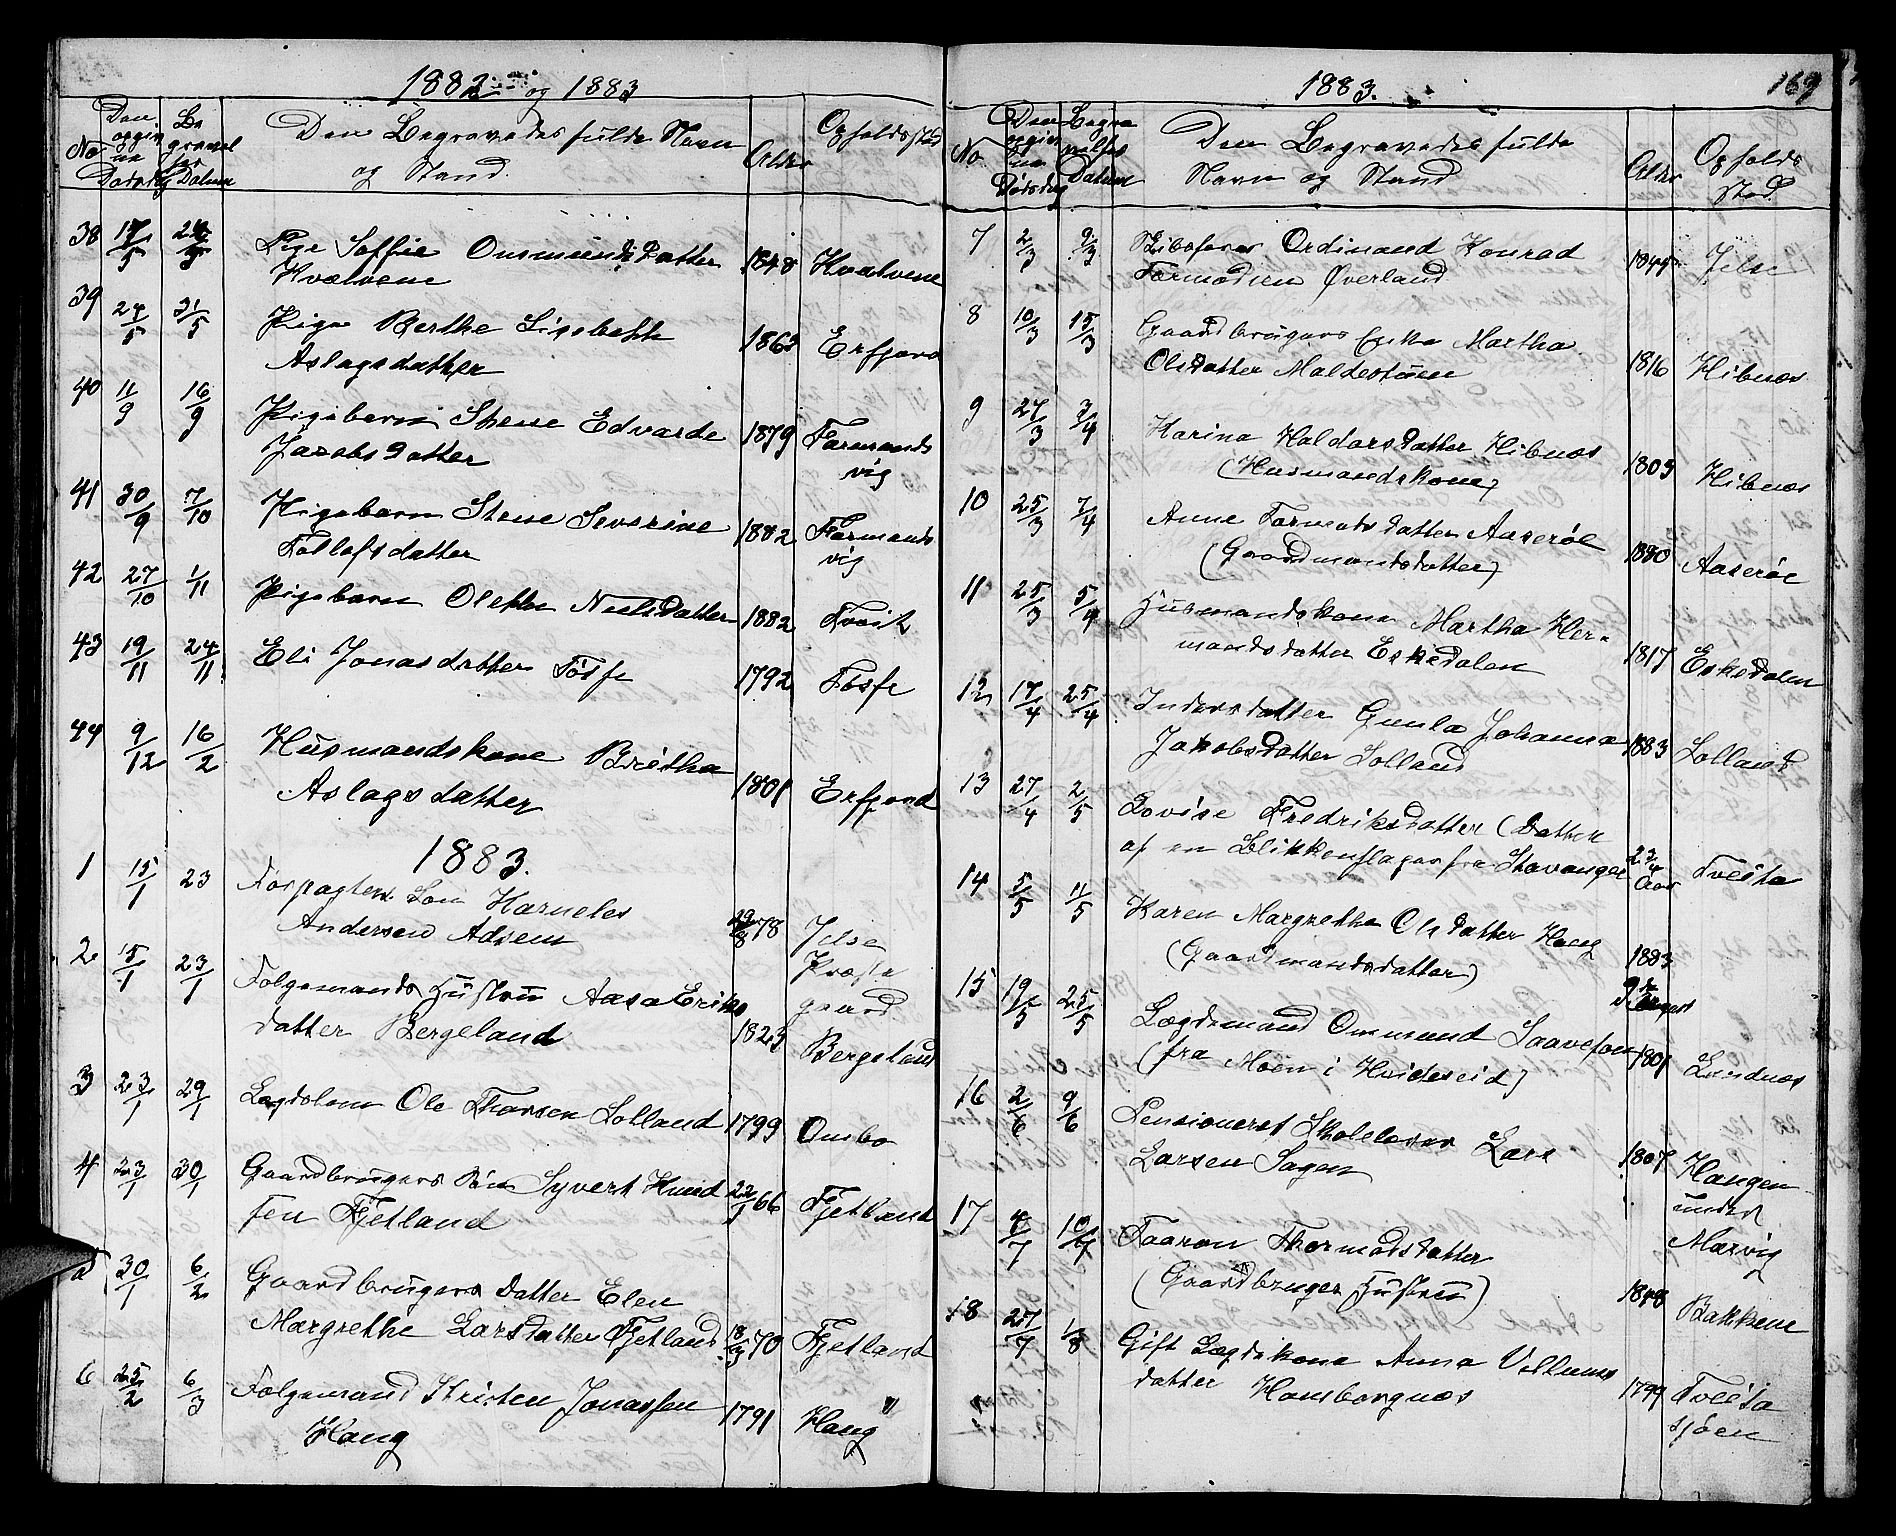 1882 og 1883
No Den opgivne Dødsdag Begravelses Datum Den Begravedes fulde Navn og Stand Alder Opholdssted
38 17/5 Pige Soffie Onsmundsdatter 1848 Kvalvene
Kvalvene
39 24/5 31/5 Pige Berthe Lisebeth 1863 Erfjord
Aslagsdatter
40 11/9 16/9 Pigebarn Stene Edvarde 1879 Formands
Jacobsdatter vig
41 30/9 7/10 Pigebarn Stene Severine 1882 Formands
Tollofsdatter vig
42 27/10 1/11 Pigebarn Olette Neelsdatter 1882 Tveit
43 19/11 24/11 Eli Jonasdatter Føsse 1792 Fosse
44 9/12 16/2 Husmandskone Britha
Aslagsdatter 1801 Erfjord
1883.
1 15/1 23 Forpagters Søn Karneles
Andersen Adsem 29/8 78 Jelse
Præste
gaard
2 15/1 23/1 Folgemands Hustru Aasa Eriks
datter Bergeland 1823 Bergeland
3 23/1 29/1 Lægdslem Ole Thorsen Lolland 1799 Ombo
4 23/1 30/1 Gaardbrugers Søn Syvert Knud
sen Fjetland 22/1 66 Fjetland
5 30/1 6/2 Gaardbrugers Datter Elen
Margrethe Larsdatter Fjetland 18/3 70 Fjetland
6 25/2 6/3 Folgemand Kristen Jonassen
Haug 1791 Haug
1883. 169
No Den opgivne Dødsdag Begravelses Datum Den Begravedes fulde Navn og Stand Alder Opholdssted
7 2/3 9/3 Skibsfører Ordinand Konrad
Tormodsen Øverland Jelse
8 10/3 15/3 Gaardbrugers Enke Martha
Olsdatter Maldestuen 1816 Hibnæs
9 27/3 3/4 Karina Haldorsdatter Hibnæs
(Husmandskone) 1805 Hibnæs
10 25/3 7/4 Anne Tormodsdatter Aaserøe
(Gaardmandsdatter) 1880 Aaserøe
11 25/3 5/4 Husmandskone Martha Her-
mandsdatter Eskedalen 1817 Eskedalen
12 17/4 25/4 Inderstdatter Gunla Johanna
Jakobsdatter Lolland 1883 Lolland
13 27/4 2/5 Lovise Fredriksdatter (Datter
af en Blikkenslager fra Stavanger 2 3/4 Aar Tveita
14 5/5 11/5 Karen Margrethe Olsdatter Haug
(Gaardmandsdatter) 1883
15 19/5 25/5 Lægdsmand Ommund Saavesen
(fra Moen i Hvideseid) 1801 Lindnæs
16 2/6 9/6 Pensioneret Skolelærer Lars
Larsen Sagen 1807 Haugen
under
Marvig
17 4/7 10/7 Taaron Thormodsdatter
(Gaardbruger Hustru) 1848 Bakkene
18 27/7 1/8 Gift Lægdskone Anna Villums
datter Homborgnæs 1799 Tveita
sjøen